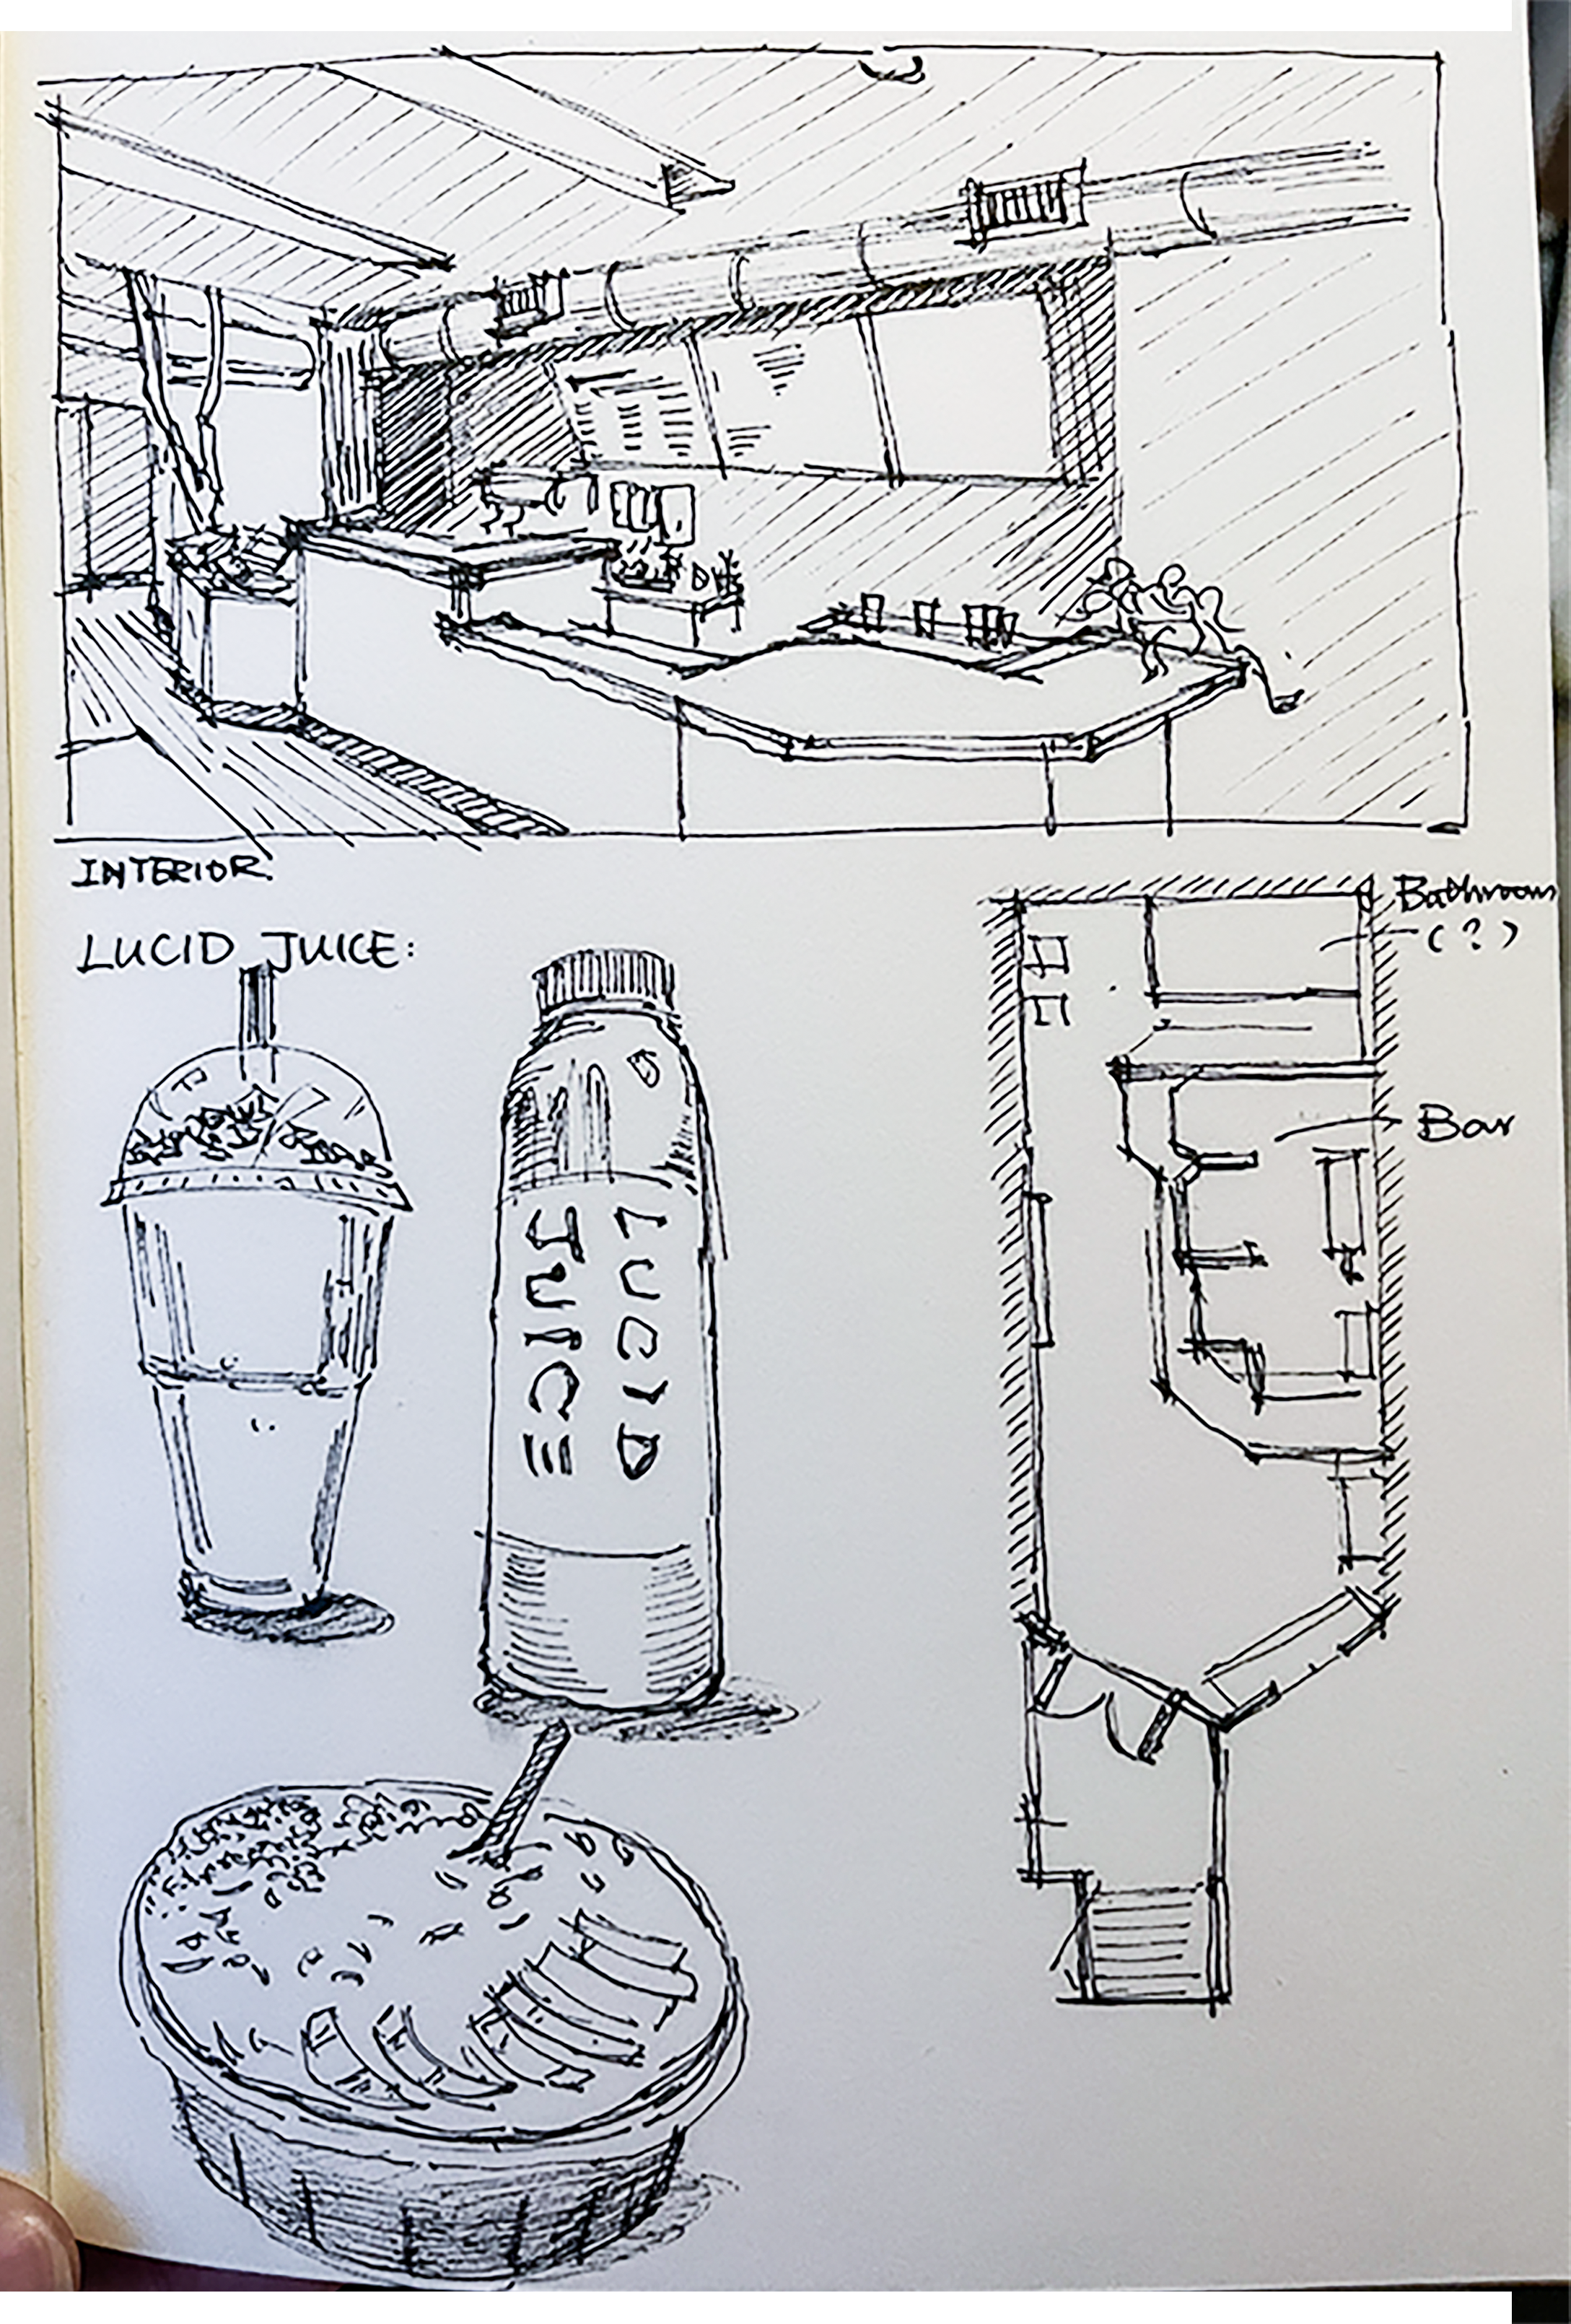 INTERIOR.
LUCID JUICE:
LUCID
JUICE
Bathroom
(?)
Bar